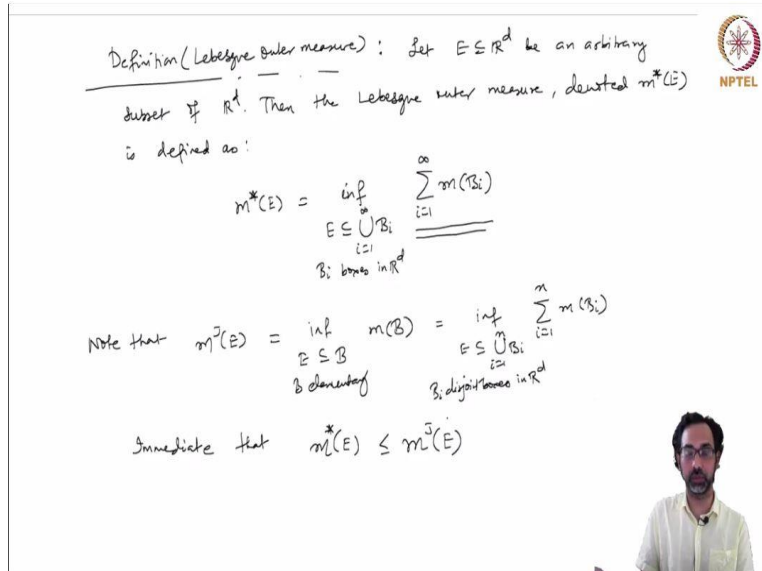 Definition (Lebesgue outer measure) : Let E ⊆ ℝ^d be an arbitrary
NPTEL
subset of ℝ^d. Then the Lebesgue outer measure, denoted m*(E)
is defined as:
m*(E) = inf_{E ⊆ ⋃_{i=1}^∞ B_i, B_i boxes in ℝ^d} ∑_{i=1}^∞ m(B_i)
Note that m^J(E) = inf_{E ⊆ B, B elementary} m(B) = inf_{E ⊆ ⋃_{i=1}^n B_i, B_i disjoint boxes in ℝ^d} ∑_{i=1}^n m(B_i)
Immediate that m*(E) ≤ m^J(E)